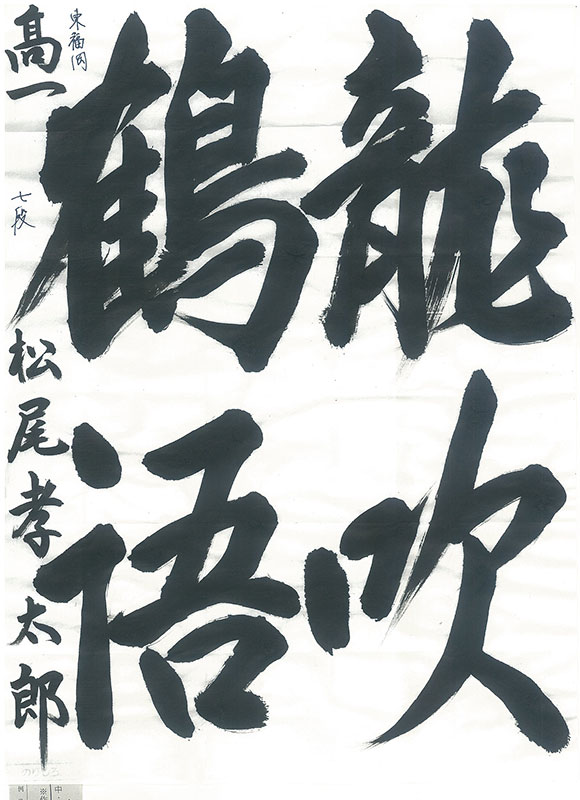 龍吹
鶴語
東福岡
高一
七段
松尾孝太郎
のりしろ